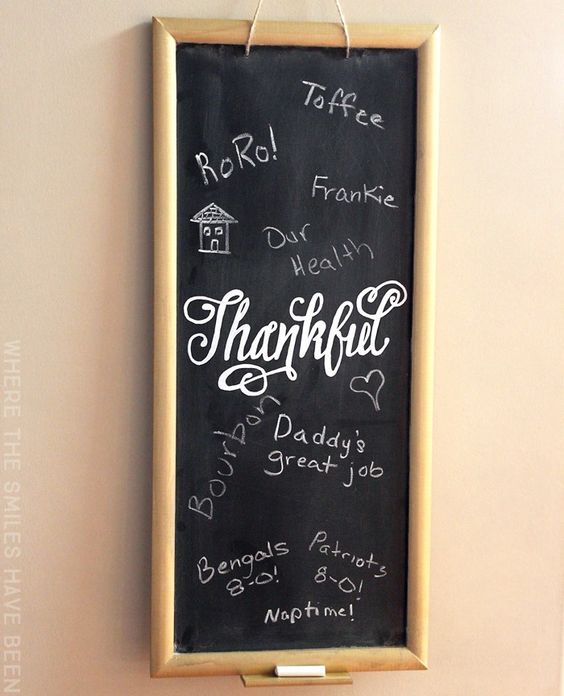 Toffee
RoRo!
Frankie
Our
Health
Thankful
Bourbon
Daddy's
great job
Bengals
8-0!
Patriots
8-0!
Naptime!
WHERE THE SMILES HAVE BEEN